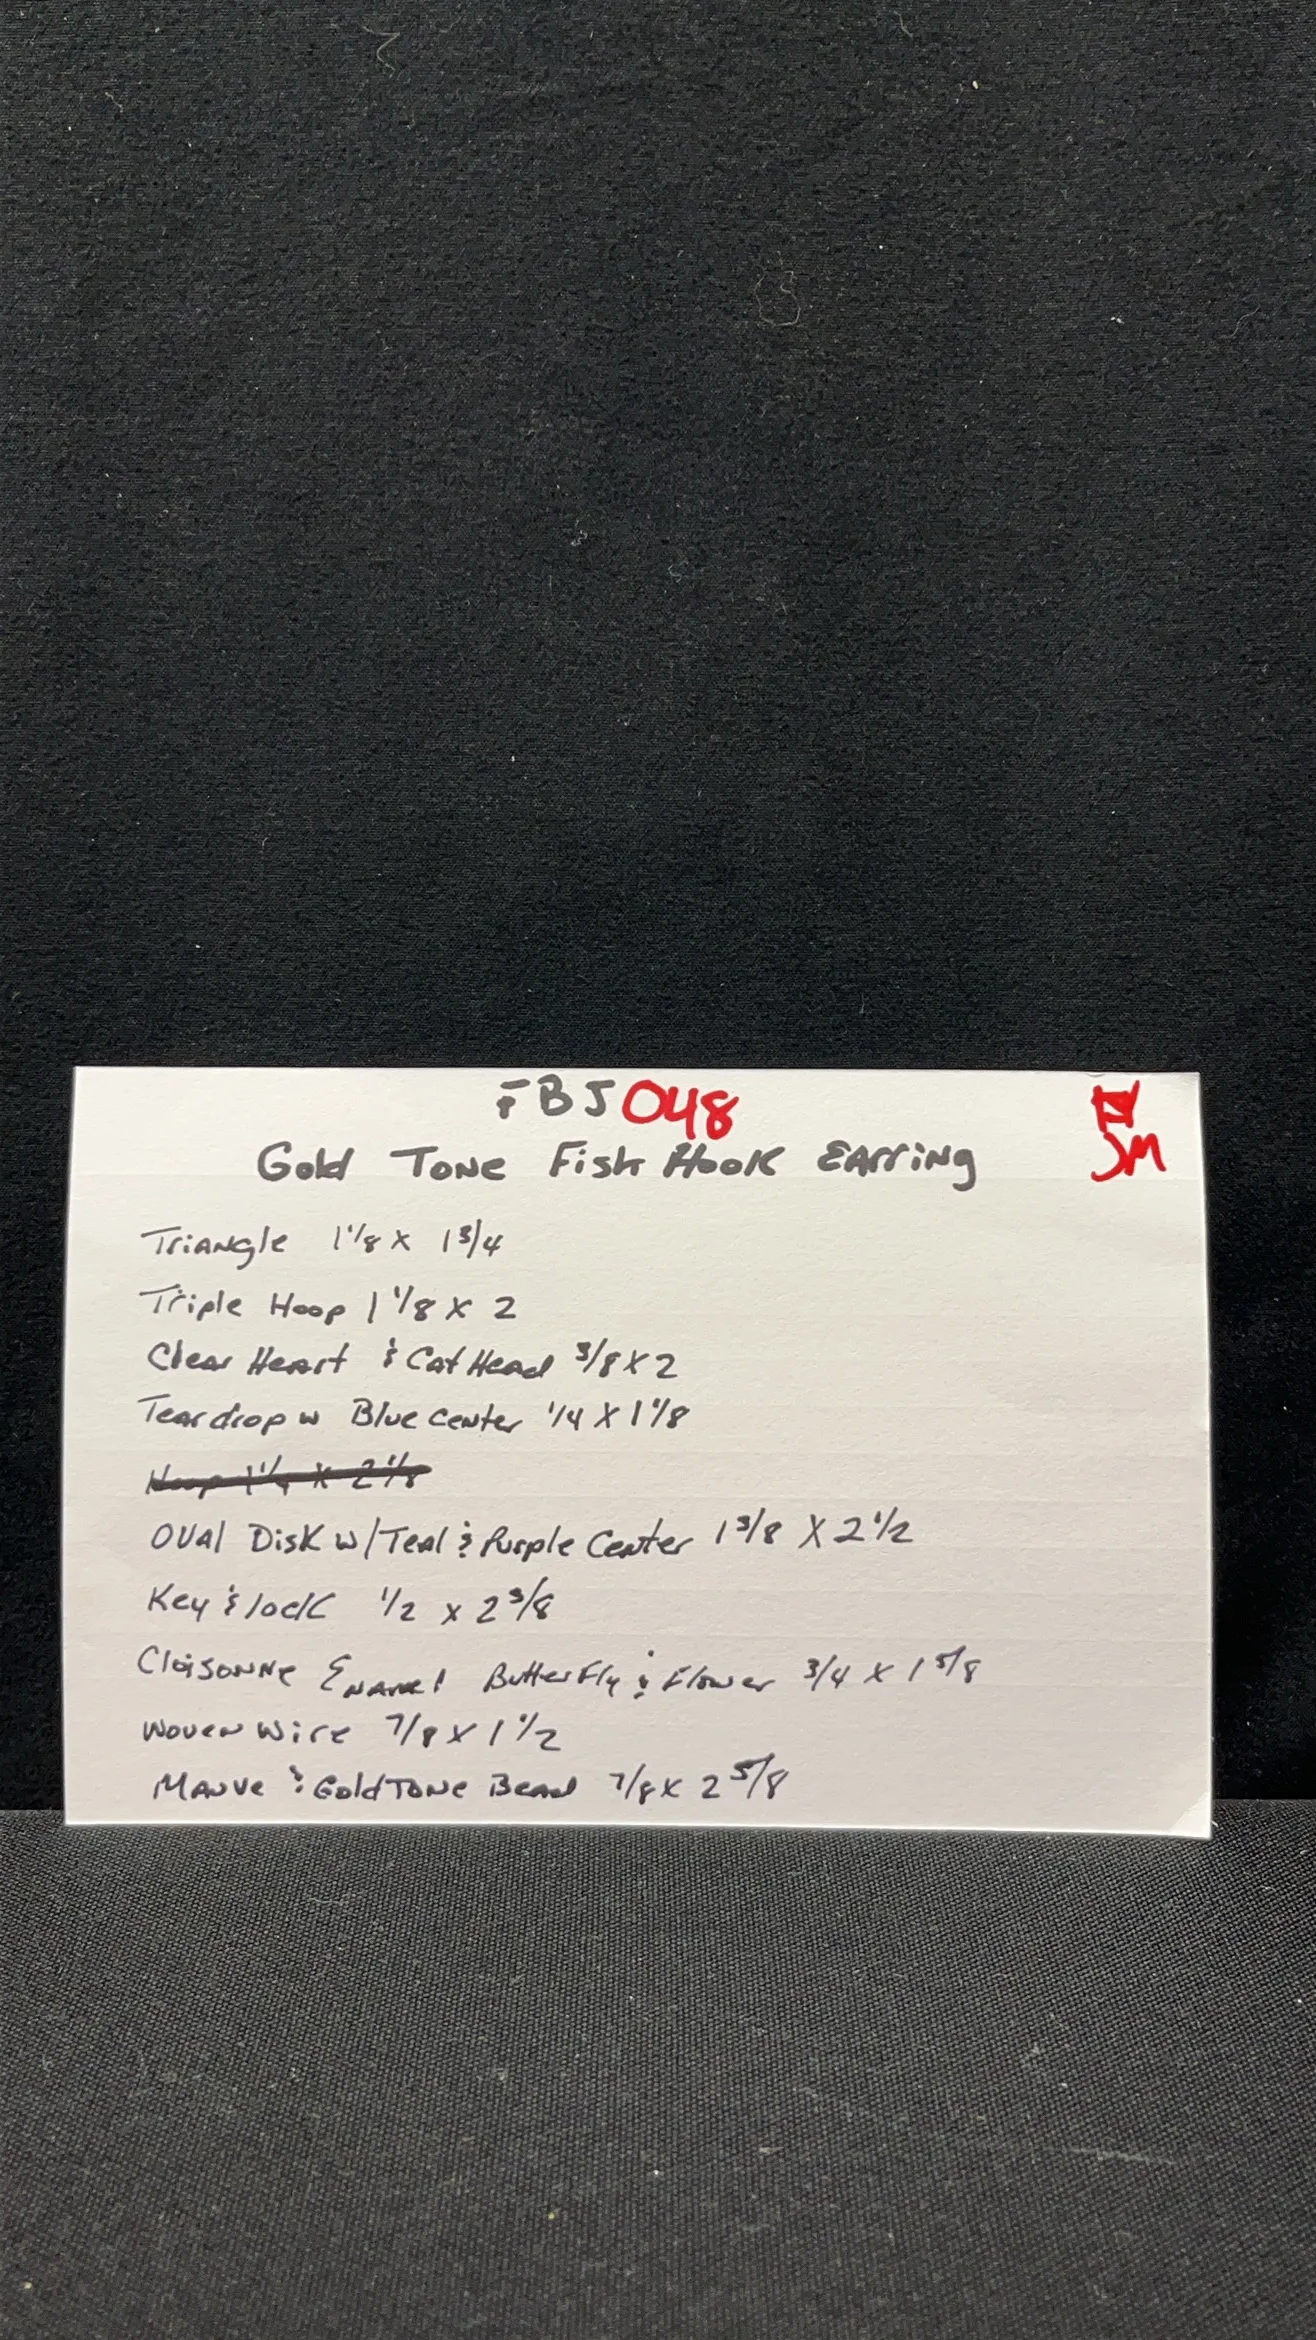 FBJ 048
JM
Gold Tone Fish Hook Earring
Triangle 1 1/8 x 1 3/4
Triple Hoop 1 1/8 x 2
Clear Heart & Cat Head 3/8 x 2
Teardrop w Blue Center 1/4 x 1 1/8
Hoop 1 1/4 x 2 1/8
Oval Disk w/Teal & Purple Center 1 3/8 x 2 1/2
Key & lock 1/2 x 2 3/8
Cloisonne Enamel Butterfly & Flower 3/4 x 1 5/8
Woven Wire 7/8 x 1 1/2
Mauve & Gold Tone Bead 7/8 x 2 5/8